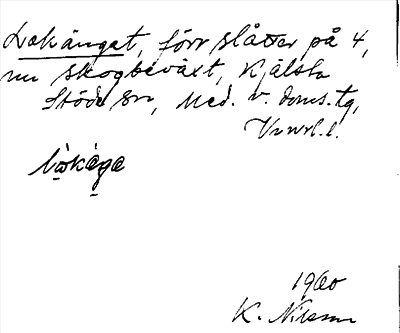 Lokänget, förr slåtter på 4,
nu skogbeväxt, Kjälsta
Stöde sn, Med. v. doms. tg,
Vnrl. l.
lòkäga
1960
K. Nilsson